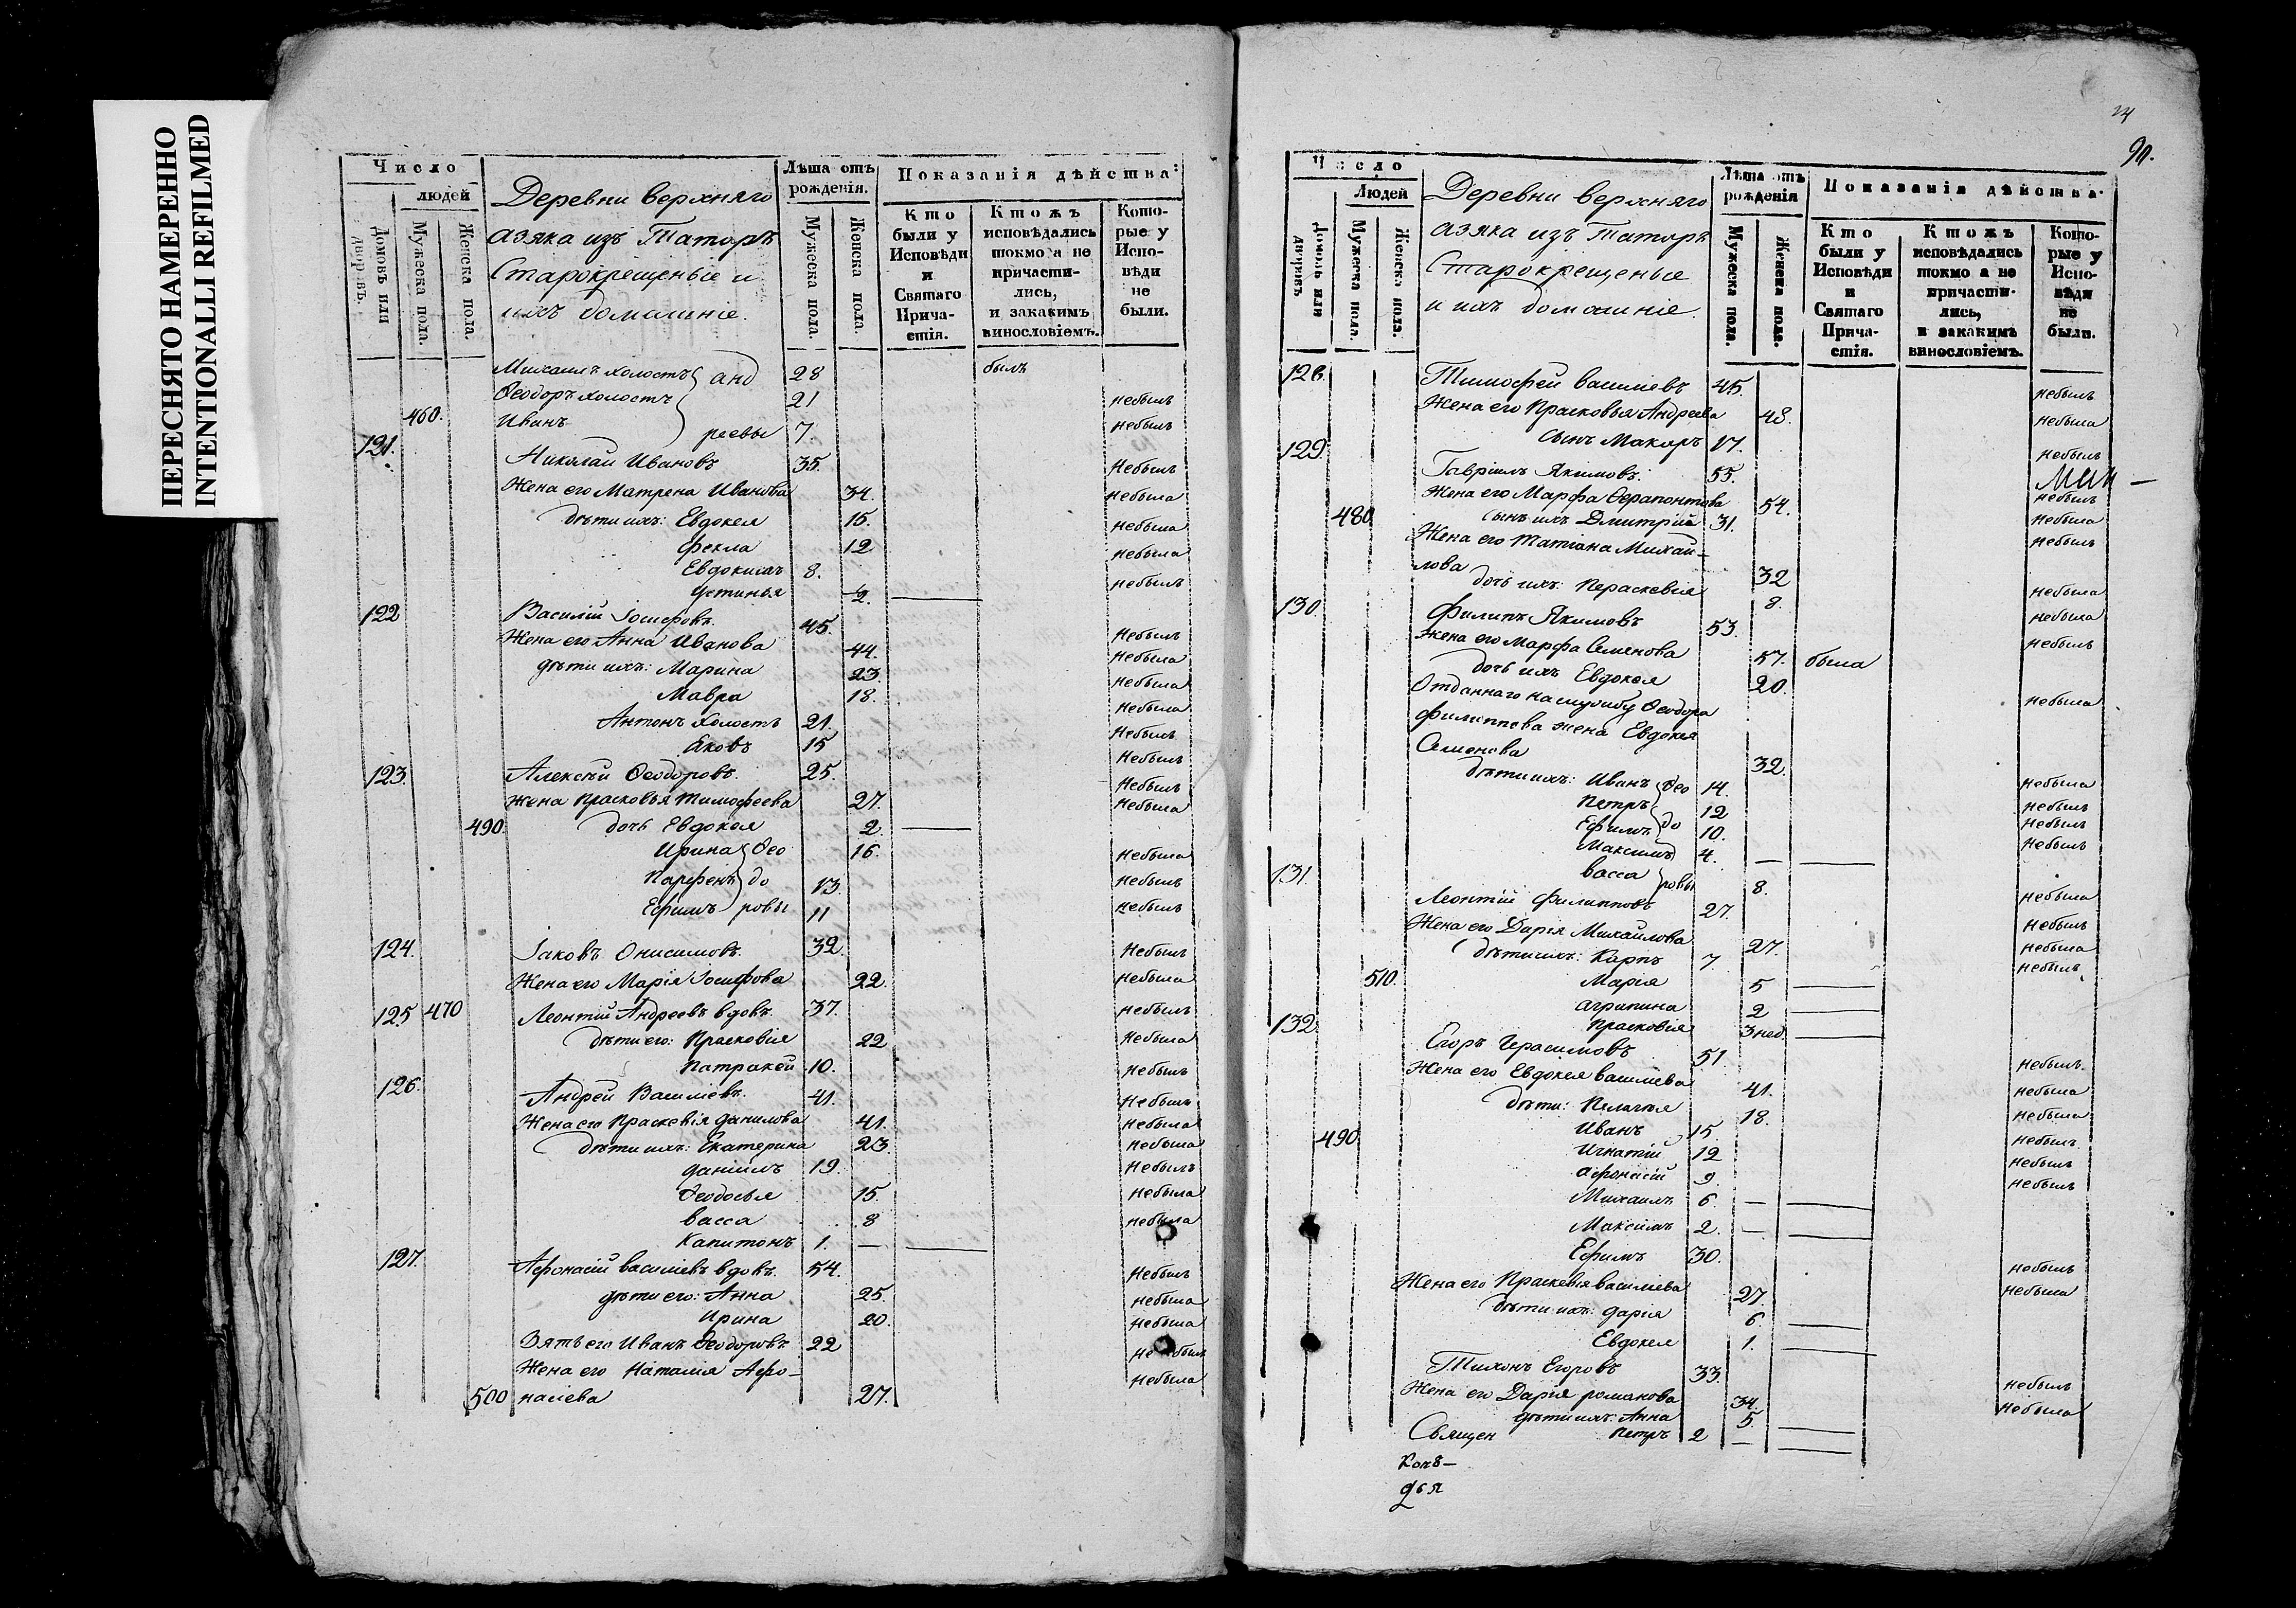 ПЕРЕСНЯТО НАМЕРЕННО
INTENTIONALLI REFILMED
Число
людей
Домовъ или дворовъ.
Мужеска пола.
Женска пола.
Деревни верхняго
азяка изъ Татаръ
Старокрещеные и
ихъ домашніе.
Лѣта отъ рожденія.
Мужеска пола.
Женска пола.
Показанія дѣйства:
Кто были у Исповѣди и Святаго Причастія.
Ктожъ исповѣдались токмо а не причастились, и закакимъ винословіемъ.
Которые у Исповѣди не были.
Михаилъ холостъ анд 28 былъ
Ѳеодоръ холостъ 21 небылъ
460. Иванъ реевы 7. небылъ
121. Николай Ивановъ 35. Небылъ
Жена его Матрена Иванова 34. небыла
дѣти ихъ: Евдокея 15. небыла
Фекла 12 небыла
Евдокимъ 8. небылъ
Устинья 2. —
122 Василій Іосифовъ. 45. Небылъ
Жена его Анна Иванова 44. небыла
дѣти ихъ: Марина 23. небыла
Мавра 18. небыла
Антонъ холостъ 21. Небылъ
Яковъ 15 Небылъ
123. Алексѣй Ѳеодоровъ. 25. Небылъ
жена Прасковья Тимофеева 27. Небыла
490. дочь Евдокея 2. —
Ирина Ѳео 16. Небыла
Парфенъ до 13. небылъ
Ефимъ ровы 11 небылъ
124. Іаковъ Онисимовъ. 32. Небылъ
Жена его Марія Іосифова 22. небыла
125. 470 Леонтій Андреевъ вдовъ. 37. небылъ
дѣти его: Прасковія 22 Небыла
Патракей 10. небылъ
126. Андрей Василіевъ. 41. Небылъ
Жена его Праскевія Данилова 41. Небыла
дѣти ихъ: Екатерина 23 небыла
Даніилъ 19. Небылъ
Ѳеодосья 15. Небыла
Васса 8 небыла
Капитонъ 1. — —
127. Афонасій василіевъ вдовъ. 54. Небылъ
дѣти его: Анна 25. небыла
Ирина 20. небыла
Зять его Иванъ Ѳеодоровъ 22 небылъ
Жена его Наталія Афо- небыла
500 насіева 27.
24
90.
Число
Людей
Домовъ или дворовъ
Мужеска пола.
Женска пола.
Деревни верхняго
азяка изъ Татаръ
Старокрещеные
и ихъ домашніе.
Лѣта отъ рожденія
Мужеска пола.
Женска пола.
Показанія дѣйства.
Кто были у Исповѣди и Святаго Причастія.
Ктожъ исповѣдались токмо а не причастились, и закакимъ винословіемъ.
Которые у Исповѣди не были.
128. Тимофей василіевъ 45. небылъ
Жена его Прасковья Андреева 48. небыла
сынъ Макаръ 17. небылъ
129. Гавріилъ Якимовъ. 55. небылъ
Жена его Марфа Ѳерапонтова 54. небыла
480 сынъ ихъ Дмитрій 31. небылъ
Жена его Татіана Михай-
лова 32 небыла
дочь ихъ: Параскевія 8. небыла
130. Филипъ Якимовъ 53. небылъ
Жена его Марфа Семенова 57. была
дочь ихъ Евдокея 20. небыла
Отданнаго наслужбу Ѳеодора
Филиппова жена Евдокея
Семенова 32. небыла
дѣти ихъ: Иванъ Ѳео 14. небылъ
Петръ 12 небылъ
Ефимъ до 10. небылъ
Максимъ 4. — —
Васса ровы 8. небыла
131. Леонтій Филипповъ 27. небылъ
Жена его Дарія Михайлова 27. небыла
дѣти ихъ: Карпъ 7. небылъ
510. Марія 5 —
Агрипина 2 —
Прасковія 3 нед. —
132 Егоръ Герасимовъ 51. небылъ.
Жена его Евдокея василіева 41. небыла
дѣти: Пелагея 18. небыла
490 Иванъ 15. небылъ
Игнатій 12 небылъ
Афонасій 9. небылъ
Михаилъ 6. — —
Максимъ 2. — —
Ефимъ 30. небылъ
Жена его Праскевія василіева 27. небыла
дѣти ихъ: Дарія 6 —
Евдокея 1. —
Тихонъ Егоровъ 33. небылъ
Жена его Дарія романова 34. небыла
дѣти ихъ: Анна 5. —
Священ Петръ 2 — —